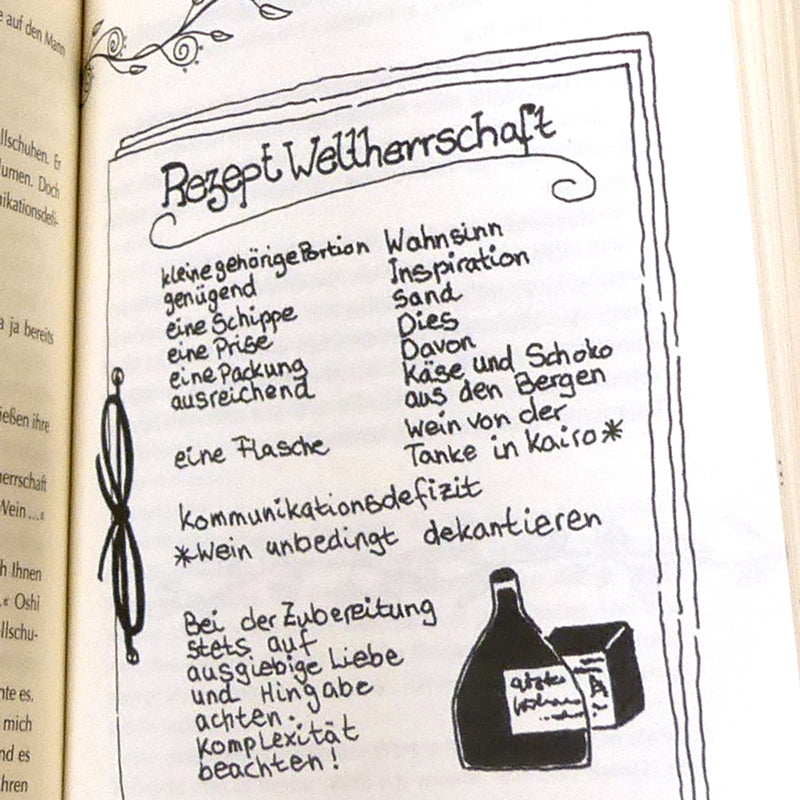 e auf den Mann
llschuhen. Er
lumen. Doch
nikationsdefi-
a ja bereits
ießen ihre
herrschaft
Wein ...«
h Ihnen
.« Oshi
llschu-
nte es.
mich
nd es
hren
Rezept Weltherrschaft
kleine gehörige Portion Wahnsinn
genügend Inspiration
eine Schippe Sand
eine Prise Dies
eine Packung Davon
ausreichend Käse und Schoko
aus den Bergen
eine Flasche Wein von der
Tanke in Kairo*
Kommunikationsdefizit
*Wein unbedingt dekantieren
Bei der Zubereitung
stets auf
ausgiebige Liebe
und Hingabe
achten.
Komplexität
beachten!